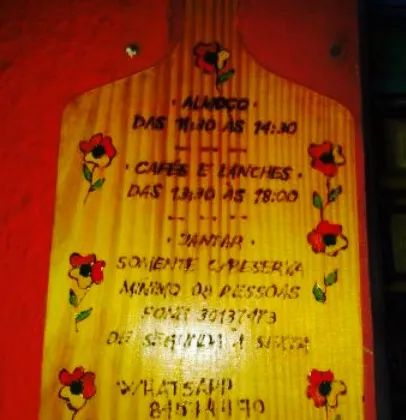 · ALMOÇO ·
DAS 11:30 ÀS 14:30
· CAFÉS E LANCHES ·
DAS 13:30 ÀS 18:00
· JANTAR ·
SOMENTE C/RESERVA
MÍNIMO PESSOAS
FONE
DE SEGUNDA À SEXTA
WHATSAPP